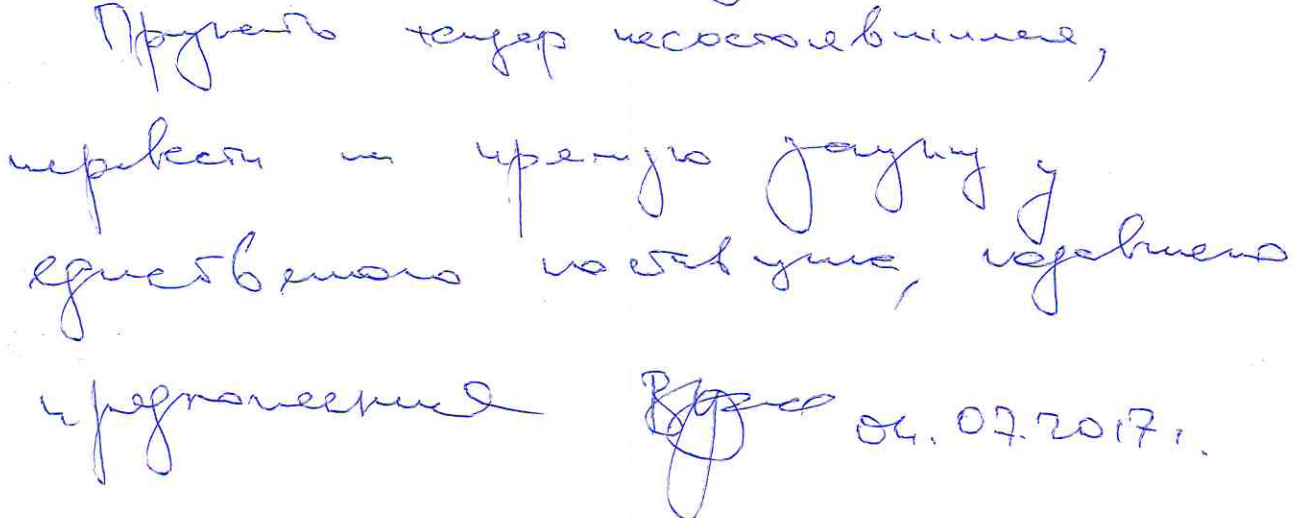 Признать тендер несостоявшимся,
перевести на прямую закупку у
единственного поставщика, подавшего
предложение 04.07.2017г.